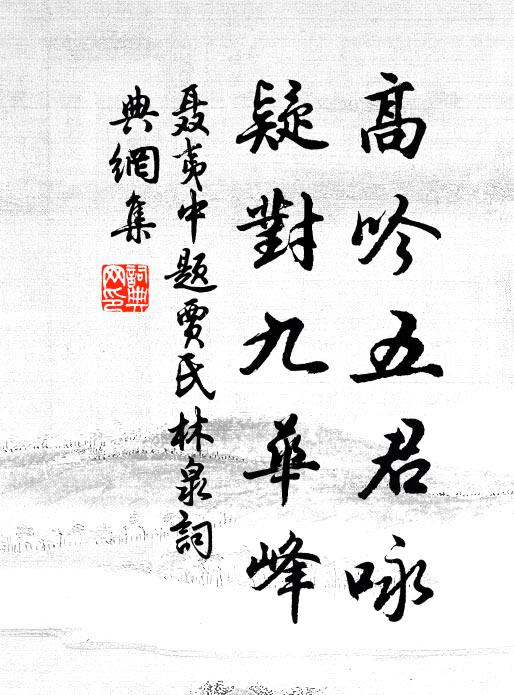 高吟五君咏
疑對九華峰
聂夷中題賈氏林泉詞
典網集
詞典
网印